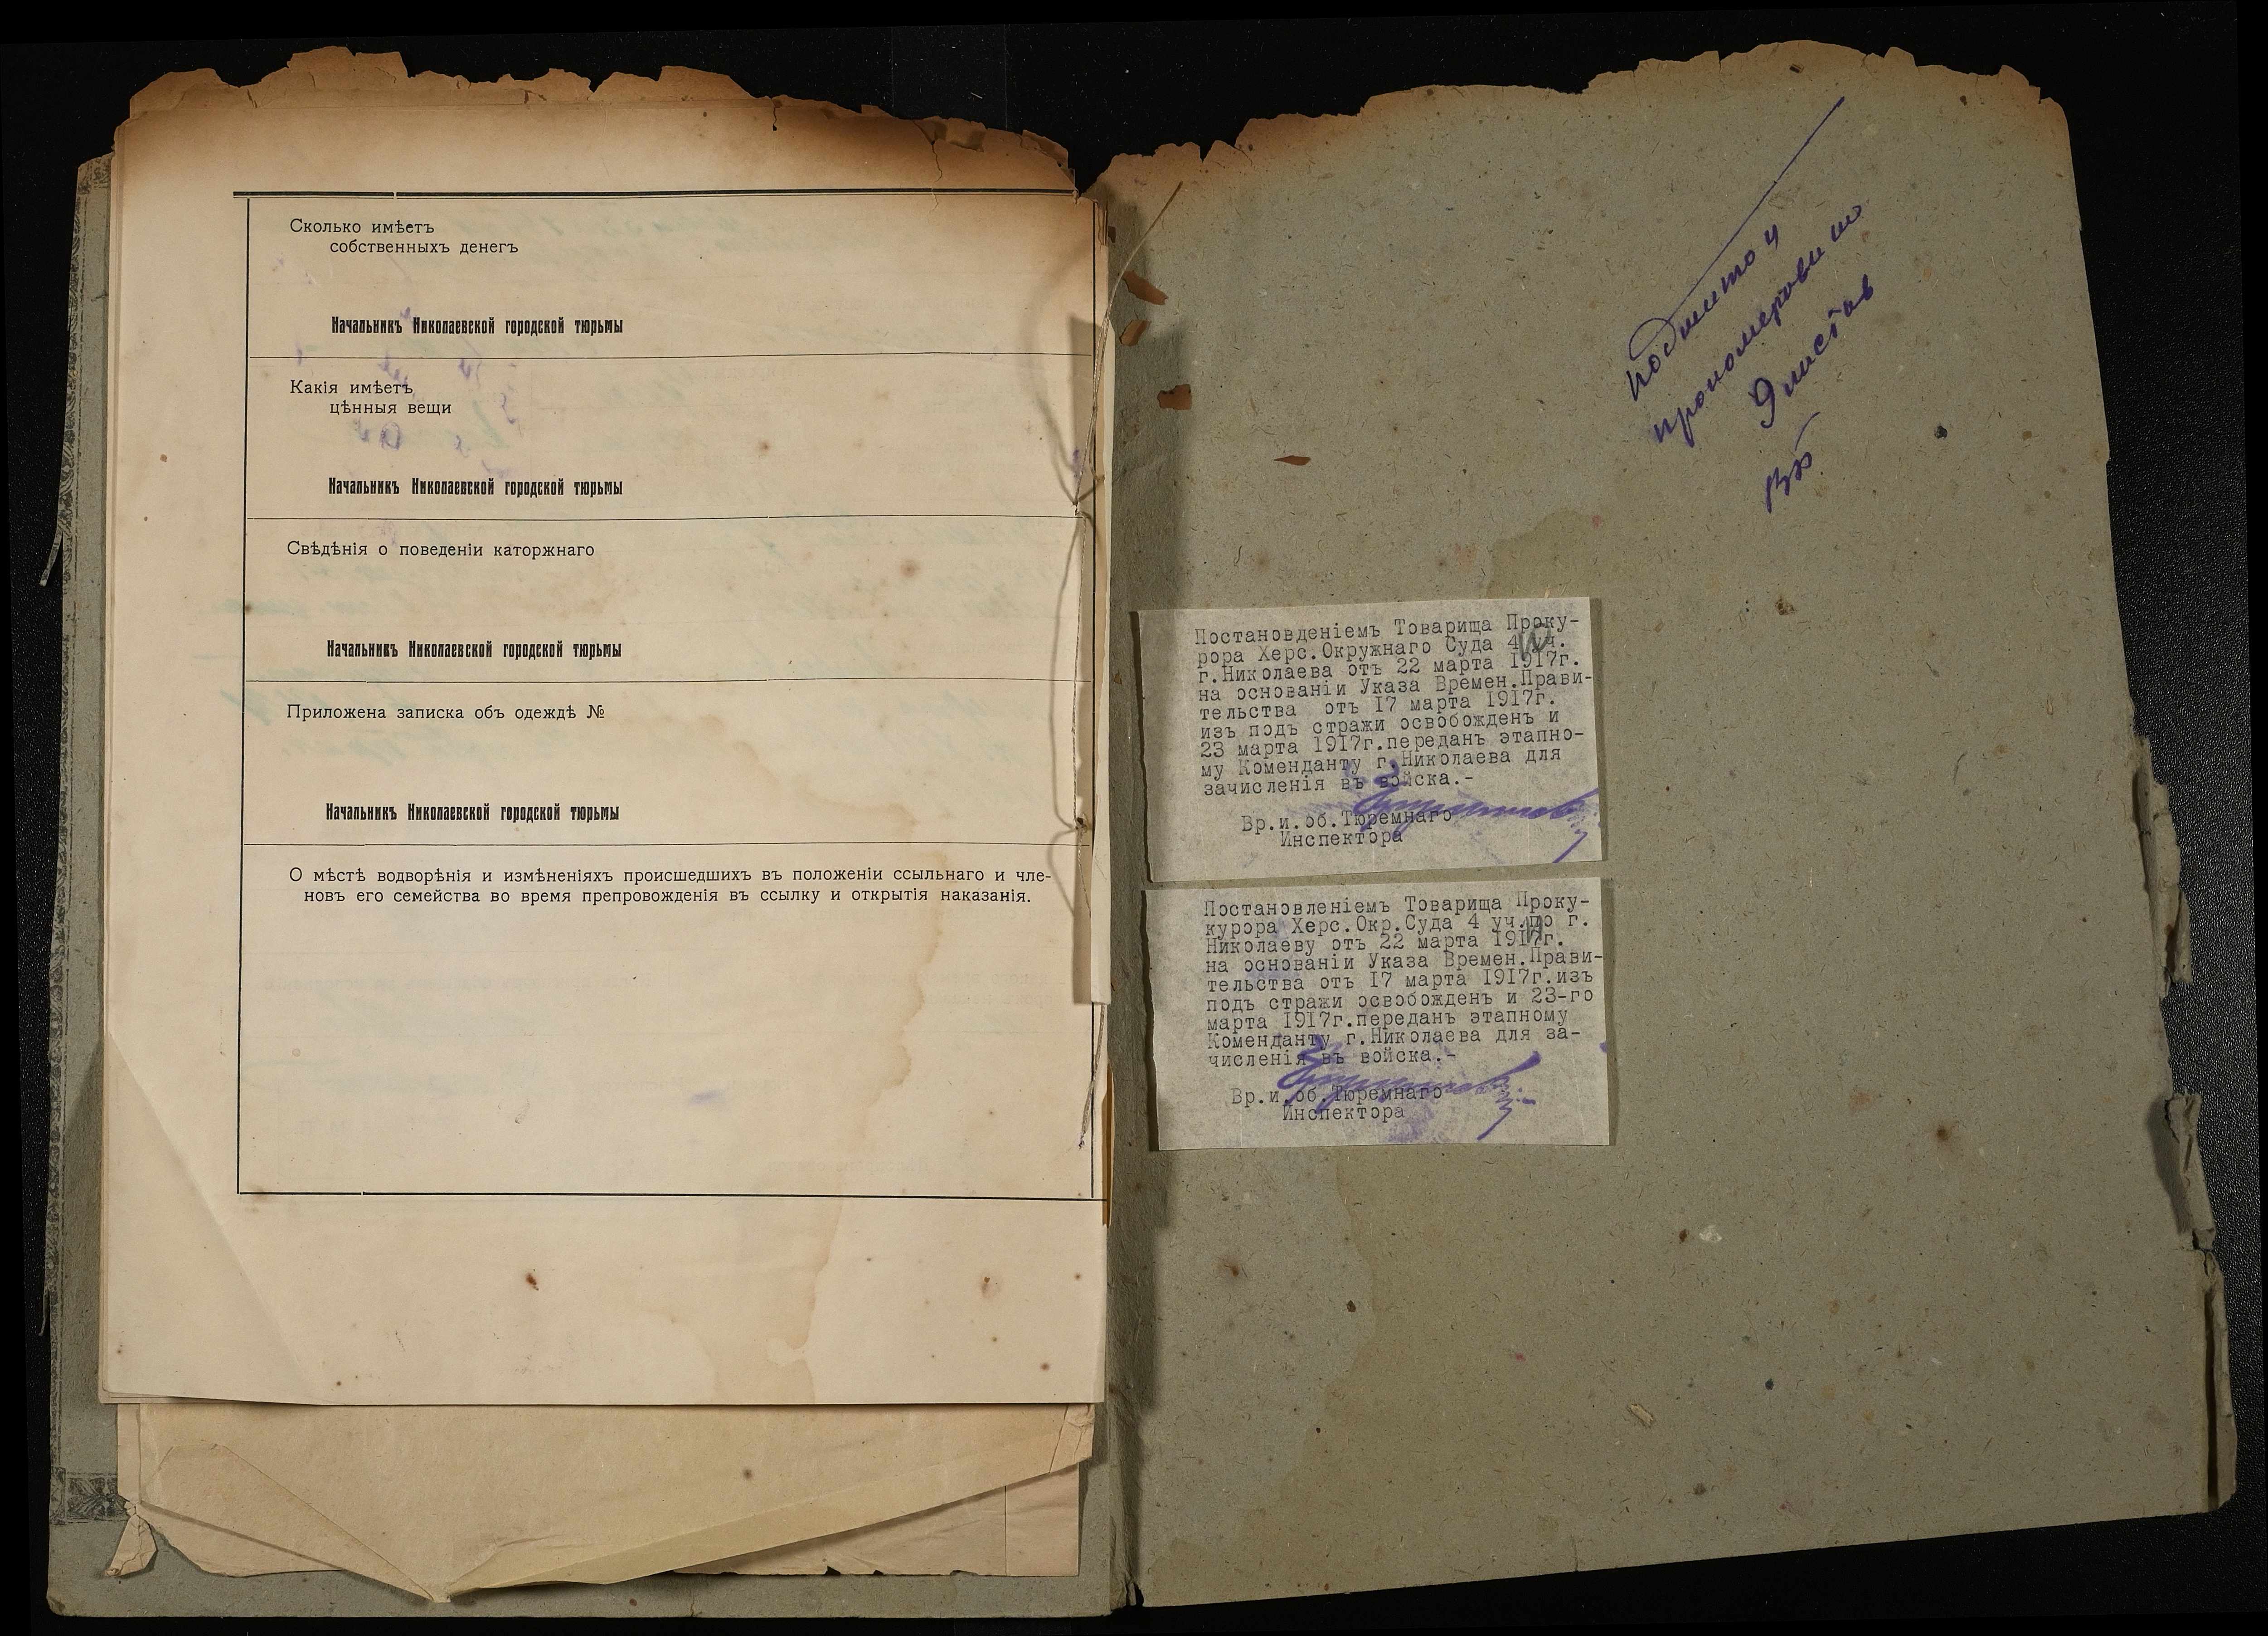 Сколько имѣетъ
собственныхъ денегъ
Начальникъ Николаевской городской тюрьмы
Какія имѣетъ
цѣнныя вещи
Начальникъ Николаевской городской тюрьмы
Свѣдѣнія о поведеніи каторжнаго
Начальникъ Николаевской городской тюрьмы
Приложена записка объ одеждѣ №
Начальникъ Николаевской городской тюрьмы
О мѣстѣ водворѣнія и измѣненіяхъ происшедшихъ въ положеніи ссыльнаго и чле-
новъ его семейства во время препровожденія въ ссылку и открытія наказанія.
подшито и
пронумеровано
9 листов
Постановденіемъ Товарища Проку-
рора Херс.Окружнаго Суда 4 уч.
г.Николаева отъ 22 марта 1917г.
на основаніи Указа Времен.Прави-
тельства отъ 17 марта 1917г.
изъ подъ стражи освобожденъ и
23 марта 1917г.переданъ этапно-
му Коменданту г.Николаева для
зачисленія въ войска.-
Вр.и.об.Тюремнаго
Инспектора
Постановленіемъ Товарища Проку-
курора Херс.Окр.Суда 4 уч.по г.
Николаеву отъ 22 марта 1917г.
на основаніи Указа Времен.Прави-
тельства отъ 17 марта 1917г.изъ
подъ стражи освобожденъ и 23-го
марта 1917г.переданъ этапному
Коменданту г.Николаева для за-
численія въ войска.-
Вр.и.об.Тюремнаго
Инспектора